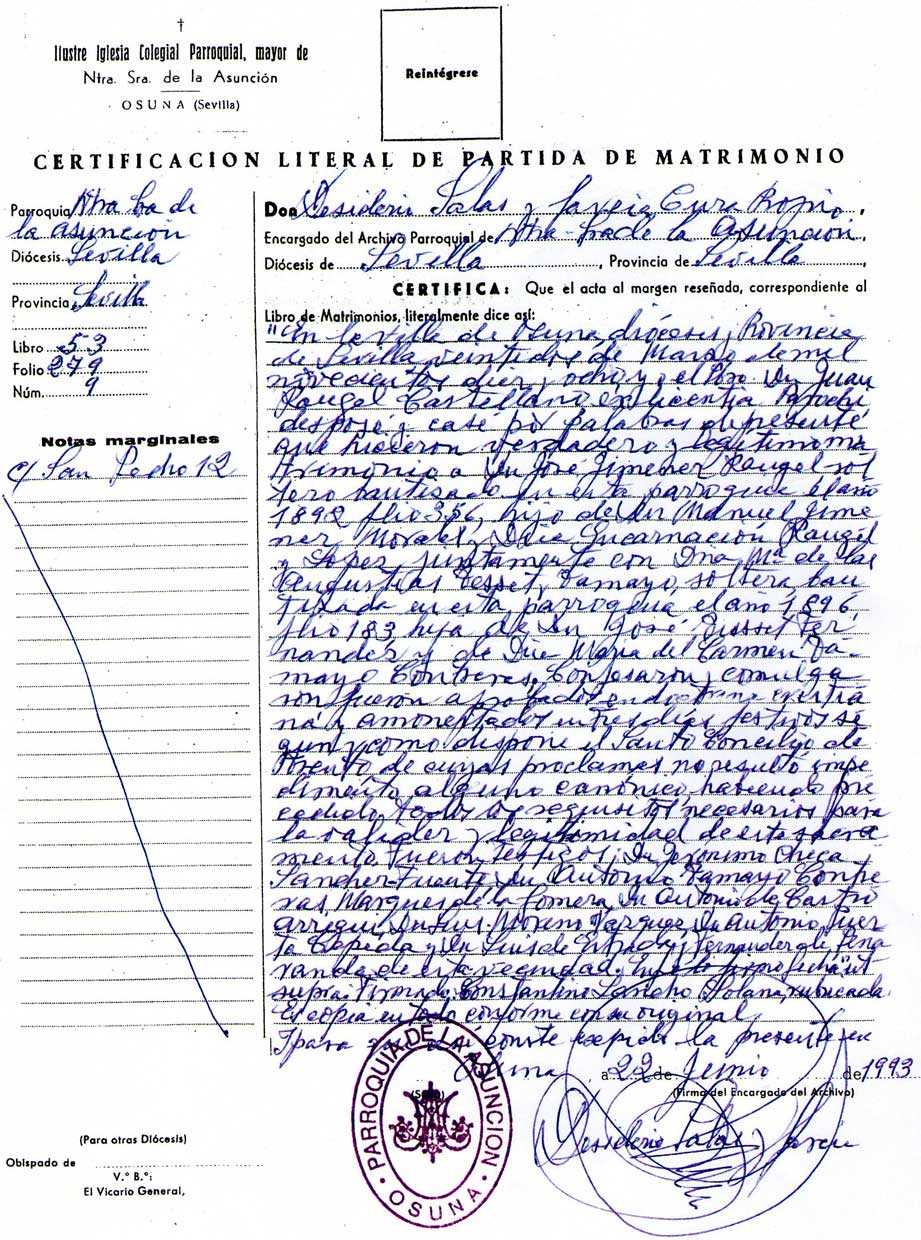 †
Ilustre Iglesia Colegial Parroquial, mayor de
Ntra. Sra. de la Asunción
OSUNA (Sevilla)
Reintégrese
CERTIFICACION LITERAL DE PARTIDA DE MATRIMONIO
Parroquia Ntra Sra de
la asunción
Diócesis Sevilla
Provincia Sevilla
Libro 53
Folio 279
Núm. 9
Notas marginales
C/ San Pedro 12
Don Desiderio Salas y García Cura Propio,
Encargado del Archivo Parroquial de Ntra Sra de la Asunción,
Diócesis de Sevilla, Provincia de Sevilla,
CERTIFICA: Que el acta al margen reseñada, correspondiente al
Libro de Matrimonios, literalmente dice así:
"En la villa de Osuna diócesis y Provincia
de Sevilla veintidos de Marzo de mil
novecientos diez y ocho yo el Pbro Dn Juan
Rangel Castellano en licentia Parochi
desposé y casé por palabras de presente
que hicieron verdadero y legítimo ma
trimonio a Dn José Jimenez Rangel sol
tero bautizado en esta parroquia el año
1892 folio 356, hijo de Dn Manuel Jime
nez Morales y Doña Encarnación Rangel
y Lopez juntamente con Dna Mª de las
Angustias Tamayo, soltera bau
tizada en esta parroquia el año 1896
folio 183 hija de Dn José Fer
nandez y de Dña Maria del Carmen Ta-
mayo Contreras, Confesaron, comulga
ron fueron aprobados en doctrina cristia
na y amonestados en tres dias festivos se
gun y como dispone el Santo Concilio de
Trento de cuyas proclamas no resultó impe
dimento alguno canónico habiendo pre
cedido todos los requisitos necesarios para
la validez y legitimidad de este sacra
mento. Fueron testigos: Dn Jeronimo Checa y
Sanchez Dn Antonio Tamayo Contre
ras Marques de la Gomera, Dn Antonio de Castro
Dn Luis Moreno Vazquez, Dn Antonio Puer
ta Cepeda y Dn Luis de y Fernandez de Peña
randa de esta vecindad. fecha ut
supra: Firmado Constantino Sancho Solana, rubricada
Es copia en todo conforme con su original
Y para que así conste expido la presente en
Osuna a 22 de Junio de 1993
(Sello)
(Firma del Encargado del Archivo)
Desiderio Salas y García
PARROQUIA DE LA ASUNCION
OSUNA
(Para otras Diócesis)
Obispado de
V.° B.°:
El Vicario General,